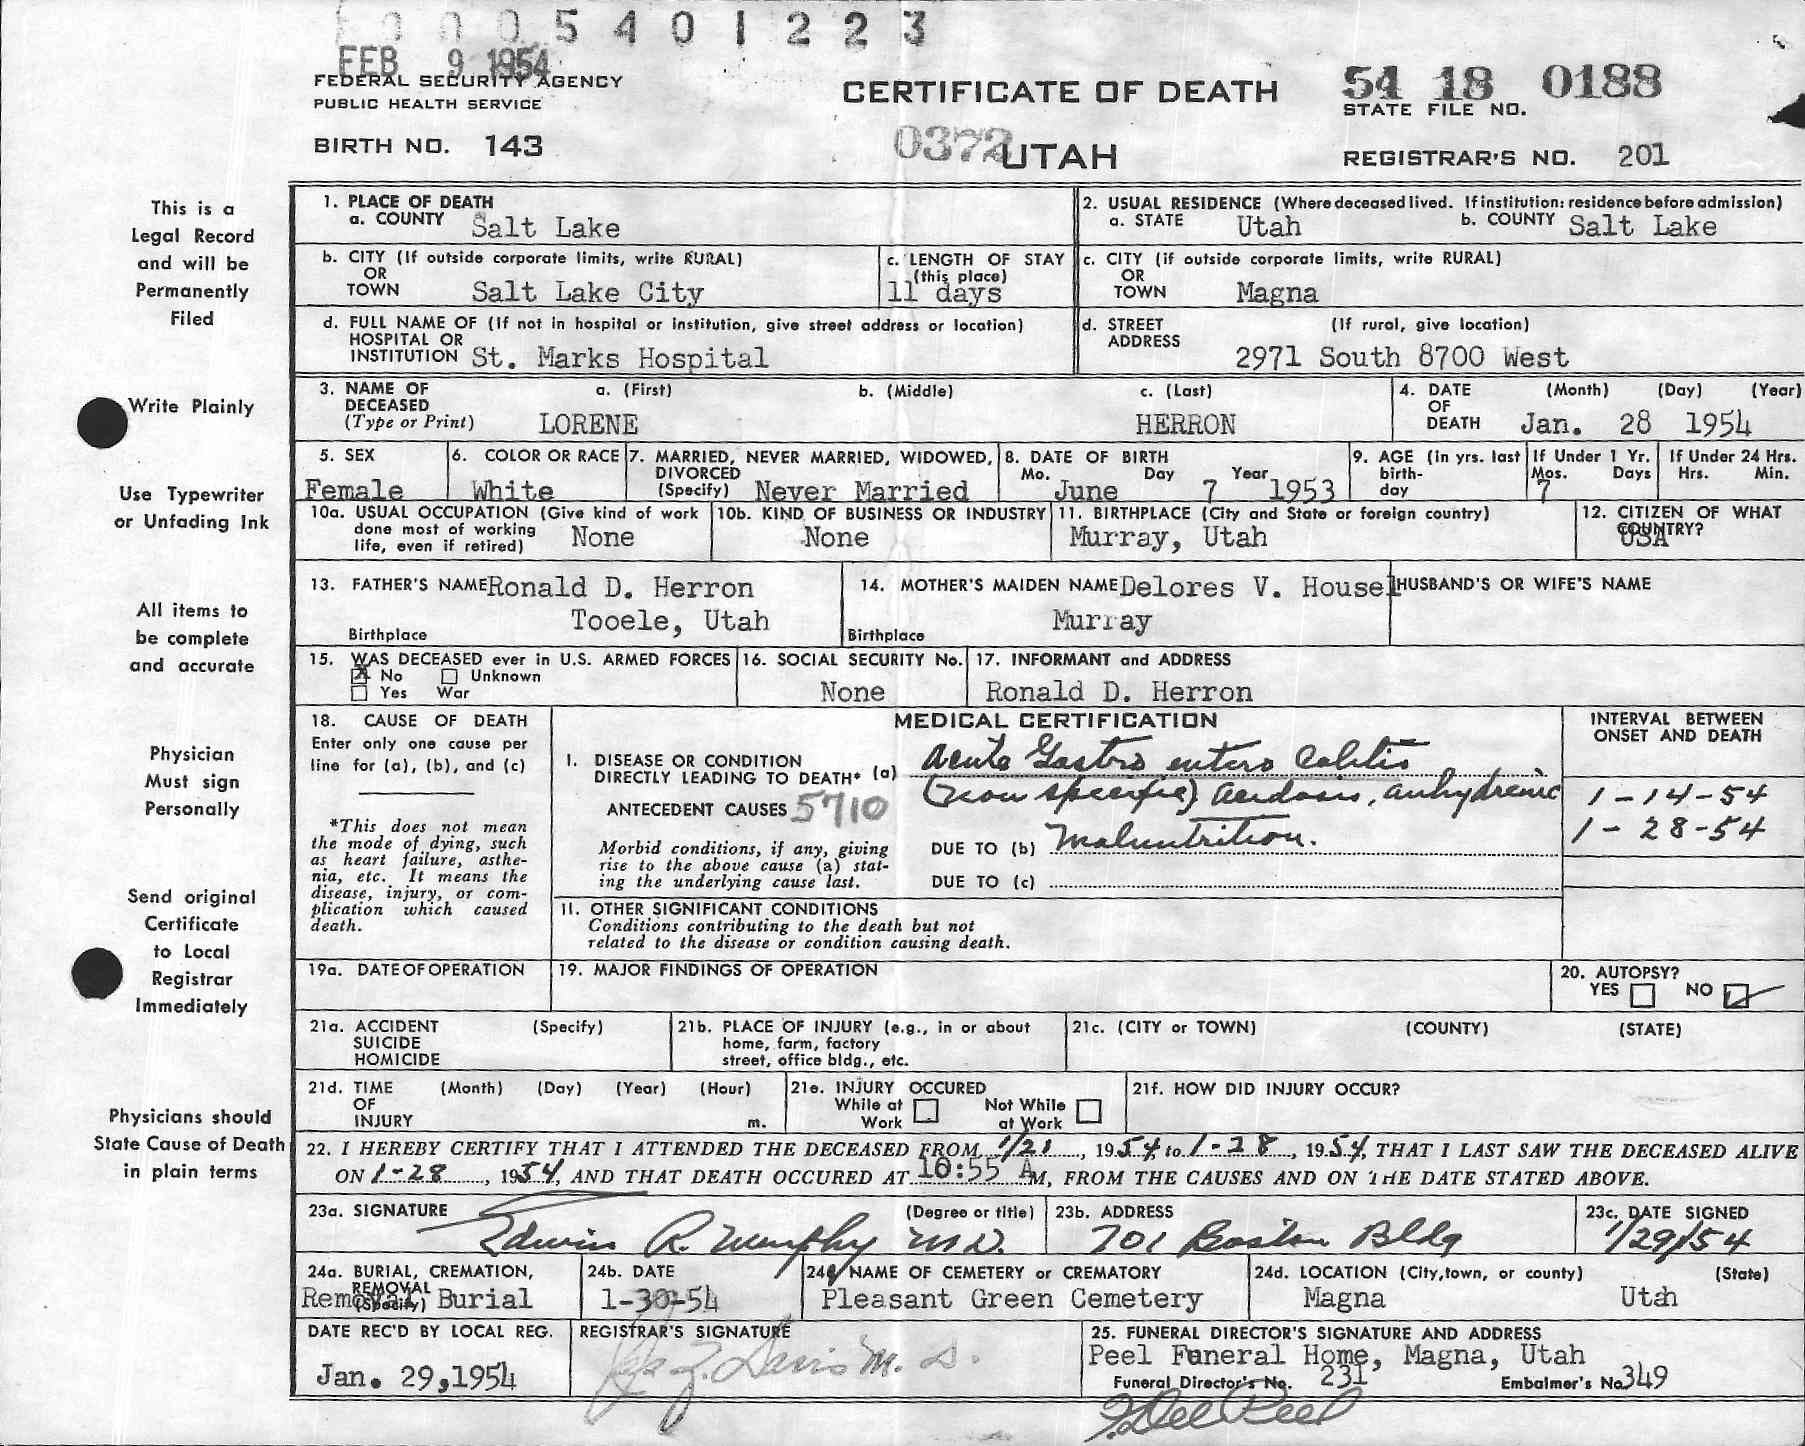 0005401223
FEB 9 1954
FEDERAL SECURITY AGENCY
PUBLIC HEALTH SERVICE
BIRTH NO. 143
CERTIFICATE OF DEATH
0372 UTAH
54 18 0188
STATE FILE NO.
REGISTRAR'S NO. 201
This is a
Legal Record
and will be
Permanently
Filed
Write Plainly
Use Typewriter
or Unfading Ink
All items to
be complete
and accurate
Physician
Must sign
Personally
Send original
Certificate
to Local
Registrar
Immediately
Physicians should
State Cause of Death
in plain terms
1. PLACE OF DEATH
a. COUNTY Salt Lake
2. USUAL RESIDENCE (Where deceased lived. If institution: residence before admission)
a. STATE Utah b. COUNTY Salt Lake
b. CITY (If outside corporate limits, write RURAL)
OR
TOWN Salt Lake City
c. LENGTH OF STAY
(this place)
11 days
c. CITY (if outside corporate limits, write RURAL)
OR
TOWN Magna
d. FULL NAME OF (If not in hospital or institution, give street address or location)
HOSPITAL OR
INSTITUTION St. Marks Hospital
d. STREET (If rural, give location)
ADDRESS
2971 South 8700 West
3. NAME OF a. (First) b. (Middle) c. (Last)
DECEASED
(Type or Print) LORENE HERRON
4. DATE (Month) (Day) (Year)
OF
DEATH Jan. 28 1954
5. SEX
Female
6. COLOR OR RACE
White
7. MARRIED, NEVER MARRIED, WIDOWED,
DIVORCED
(Specify) Never Married
8. DATE OF BIRTH
Mo. Day Year
June 7 1953
9. AGE (In yrs. last
birth-
day
If Under 1 Yr.
Mos. Days
7
If Under 24 Hrs.
Hrs. Min.
10a. USUAL OCCUPATION (Give kind of work
done most of working
life, even if retired) None
10b. KIND OF BUSINESS OR INDUSTRY
None
11. BIRTHPLACE (City and State or foreign country)
Murray, Utah
12. CITIZEN OF WHAT
COUNTRY?
USA
13. FATHER'S NAME Ronald D. Herron
Tooele, Utah
Birthplace
14. MOTHER'S MAIDEN NAME Delores V. Housel
Murray
Birthplace
HUSBAND'S OR WIFE'S NAME
15. WAS DECEASED ever in U.S. ARMED FORCES
X No Unknown
Yes War
16. SOCIAL SECURITY No.
None
17. INFORMANT and ADDRESS
Ronald D. Herron
18. CAUSE OF DEATH
Enter only one cause per
line for (a), (b), and (c)
*This does not mean
the mode of dying, such
as heart failure, asthe-
nia, etc. It means the
disease, injury, or com-
plication which caused
death.
MEDICAL CERTIFICATION
INTERVAL BETWEEN
ONSET AND DEATH
I. DISEASE OR CONDITION
DIRECTLY LEADING TO DEATH* (a) Acute Gastro entero Colitis
(non specific) acidosis, anhydremic
1-14-54
ANTECEDENT CAUSES 5710
1-28-54
Morbid conditions, if any, giving
rise to the above cause (a) stat-
ing the underlying cause last.
DUE TO (b) Malnutrition.
DUE TO (c)
II. OTHER SIGNIFICANT CONDITIONS
Conditions contributing to the death but not
related to the disease or condition causing death.
19a. DATE OF OPERATION
19. MAJOR FINDINGS OF OPERATION
20. AUTOPSY?
YES NO ✓
21a. ACCIDENT (Specify)
SUICIDE
HOMICIDE
21b. PLACE OF INJURY (e.g., in or about
home, farm, factory
street, office bldg., etc.
21c. (CITY or TOWN) (COUNTY) (STATE)
21d. TIME (Month) (Day) (Year) (Hour)
OF
INJURY m.
21e. INJURY OCCURED
While at Not While
Work at Work
21f. HOW DID INJURY OCCUR?
22. I HEREBY CERTIFY THAT I ATTENDED THE DECEASED FROM 1/21, 1954, to 1-28, 1954, THAT I LAST SAW THE DECEASED ALIVE
ON 1-28, 1954, AND THAT DEATH OCCURED AT 10:55 A M, FROM THE CAUSES AND ON THE DATE STATED ABOVE.
23a. SIGNATURE (Degree or title)
Edwin R. Murphy M.D.
23b. ADDRESS
701 Boston Bldg
23c. DATE SIGNED
1/29/54
24a. BURIAL, CREMATION,
REMOVAL
(Specify)
Removal Burial
24b. DATE
1-30-54
24c NAME OF CEMETERY or CREMATORY
Pleasant Green Cemetery
24d. LOCATION (City, town, or county) (State)
Magna Utah
DATE REC'D BY LOCAL REG.
Jan. 29, 1954
REGISTRAR'S SIGNATURE
Davis M. D.
25. FUNERAL DIRECTOR'S SIGNATURE AND ADDRESS
Peel Funeral Home, Magna, Utah
Funeral Director's No. 231 Embalmer's No. 349
Peel